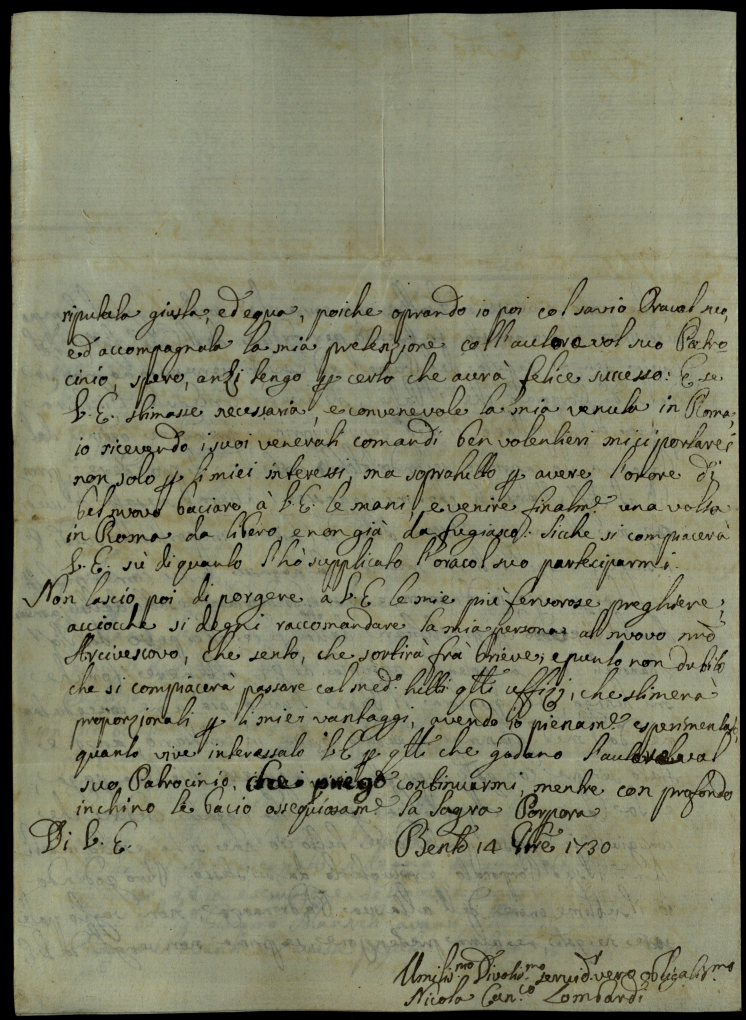 riputata giusta, ed equa, poiche oprando io poi col savio Oracol suo,
ed accompagnata la mia pretenzione coll'autorevol suo Patro
cinio, spero, anzi tengo p certo che avrà felice successo: E se
V. E. stimasse necessaria, e convenevole la mia venuta in Roma,
io ricevendo i suoi venerati comandi ben volentieri mici portarei
non solo p li miei interessi, ma sopratutto p avere l'onore di
bel nuovo baciare à V. E. le mani, e venire finalm.e una volta
in Roma da libero, e non già da fugiasco. Sicche si compiacerà
V. E. sù di quanto l'hò supplicato l'oracol suo parteciparmi.
Non lascio poi di porgere à V. E. le mie più fervorose preghiere,
acciocche si degni raccomandare la mia persona al nuovo nrõ
Arcivescovo, che sento, che sortirà frà brieve; e punto non dubito
che si compiacerà passare col med.o tutti q̃lli uffizj, che stimerà
proporzionali p li miei vantaggi, avendo io pienam.e esperimentato,
quanto vive interessato V. E. p q̃lli che godano l'autorevol
suo Patrocinio, che i priego continuarmi, mentre con profondo
inchino le bacio ossequiosam.e la Sagra Porpora
Di V. E. Bento 14 1730
Umiliss.mo Divotis.mo servid.r vero obligatis.mo
Nicola Can.co Lombardi